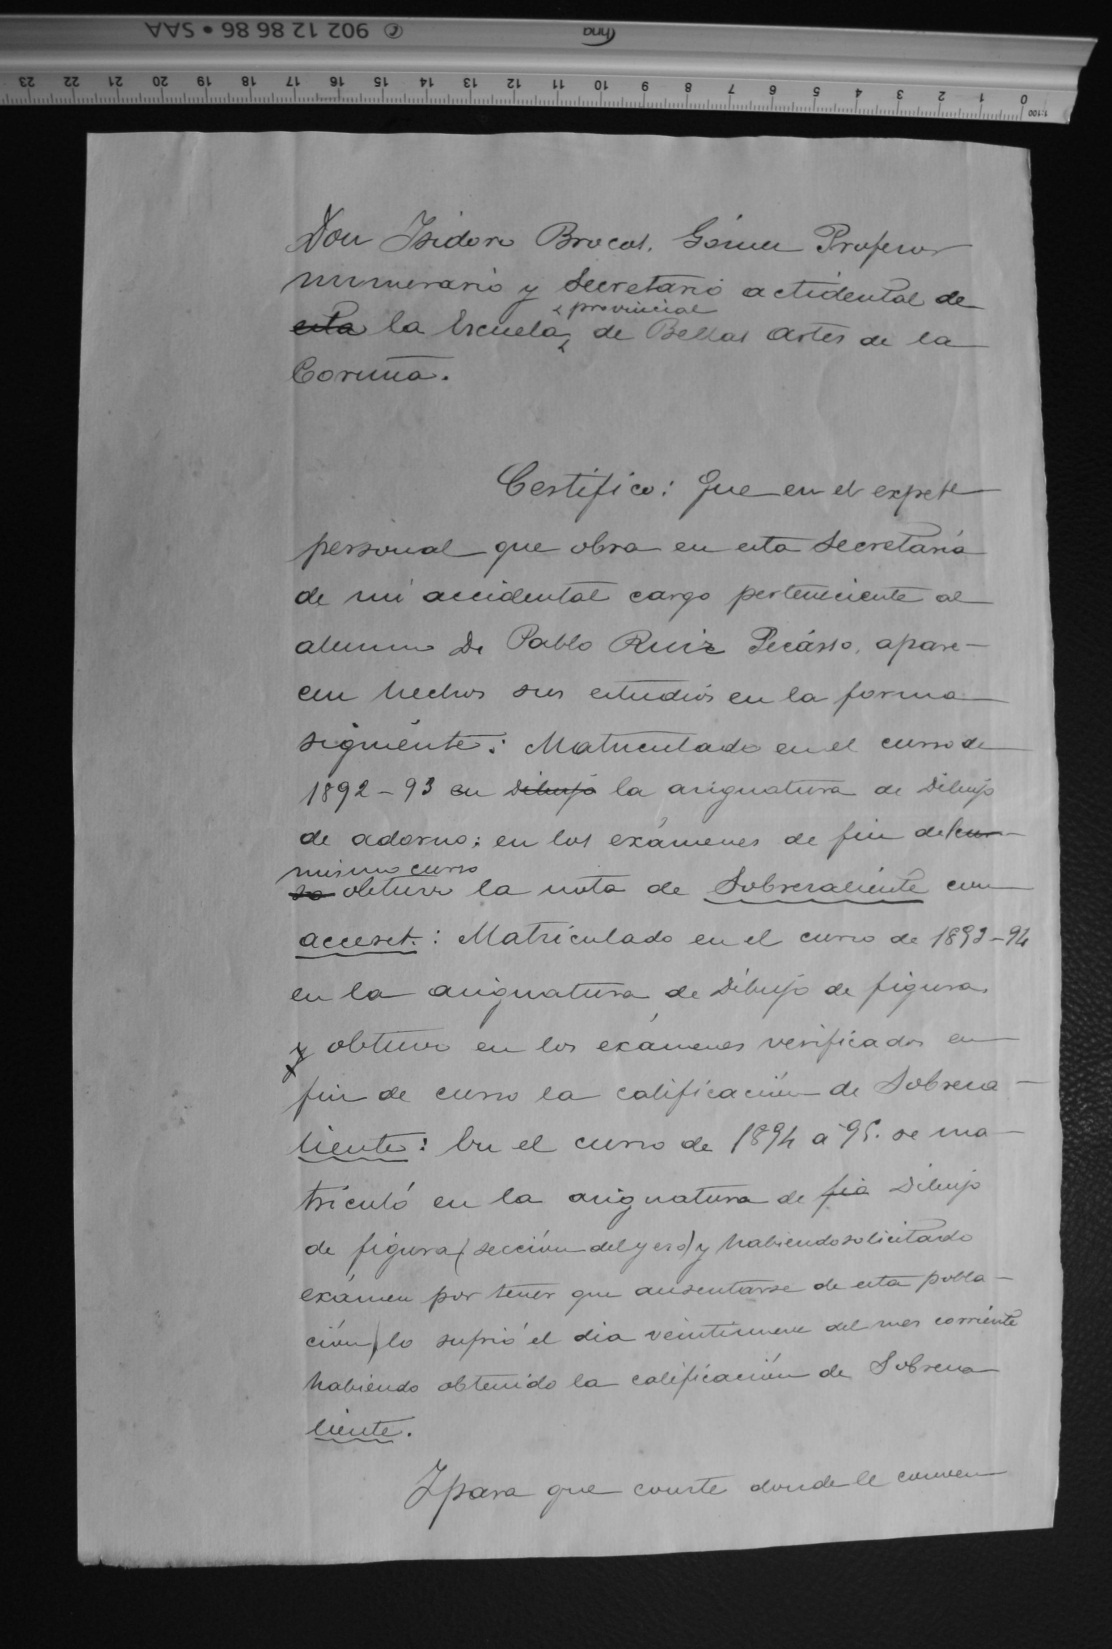 © 902 12 86 86 • SAA
23 22 21 20 19 18 17 16 15 14 13 12 11 10 9 8 7 6 5 4 3 2 1 0
1:100
Don Isidoro Brocos, Gómez Profesor
numerario y Secretario actidental de
esta la Escuela provincial de Bellas Artes de la
Coruña.
Certifico: Que en el expete
personal que obra en esta Secretaría
de mi accidental cargo perteneciente al
alumno Dn Pablo Ruiz Picásso, apare-
cen hechos sus estudios en la forma
siguiente: Matriculado en el curso de
1892-93 en Dibujo la asignatura de Dibujo
de adorno; en los exámenes de fin del cur-
so mismo curso obtuvo la nota de Sobresaliente con
accesit.: Matriculado en el curso de 1893-94
en la asignatura de Dibujo de figura
y obtuvo en los exámenes verificados en
fin de curso la calificación de Sobresa-
liente: En el curso de 1894 a 95. se ma-
triculó en la asignatura de Dibujo
de figura (sección del yeso) y habiendo solicitado
exámen por tener que ausentarse de esta pobla-
ción, lo sufrió el dia veintinueve del mes corriente
habiendo obtenido la calificación de Sobresa
liente.
Y para que conste donde le conven